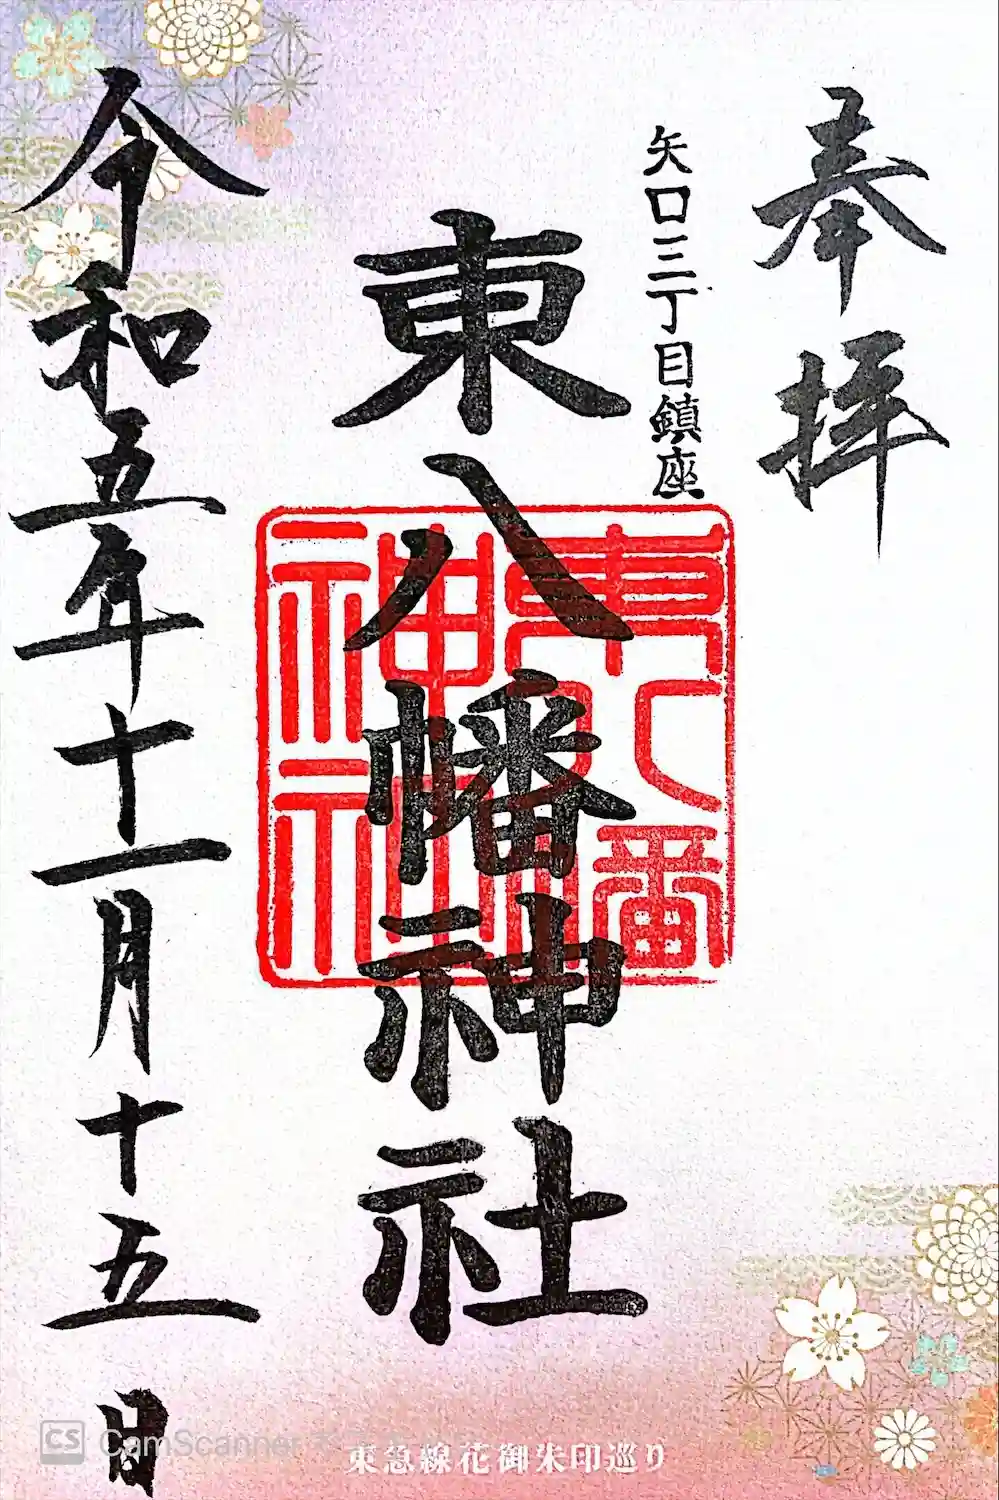 奉拝
矢口三丁目鎮座
東八幡神社
東八幡
神社
令和五年十一月十五日
東急線花御朱印巡り
CS CamScanner